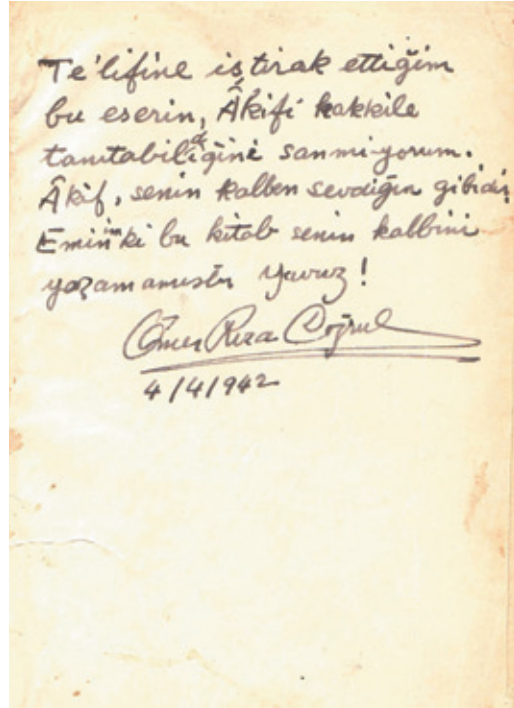 Te'lifine iştirak ettiğim
bu eserin, Âkifi hakkile
tanıtabildiğini sanmıyorum.
Âkif, senin kalben sevdiğin gibidir
Eminim ki bu kitab senin kalbini
yazamamıştır Yavuz!
Ömer Rıza Doğrul
4/4/942